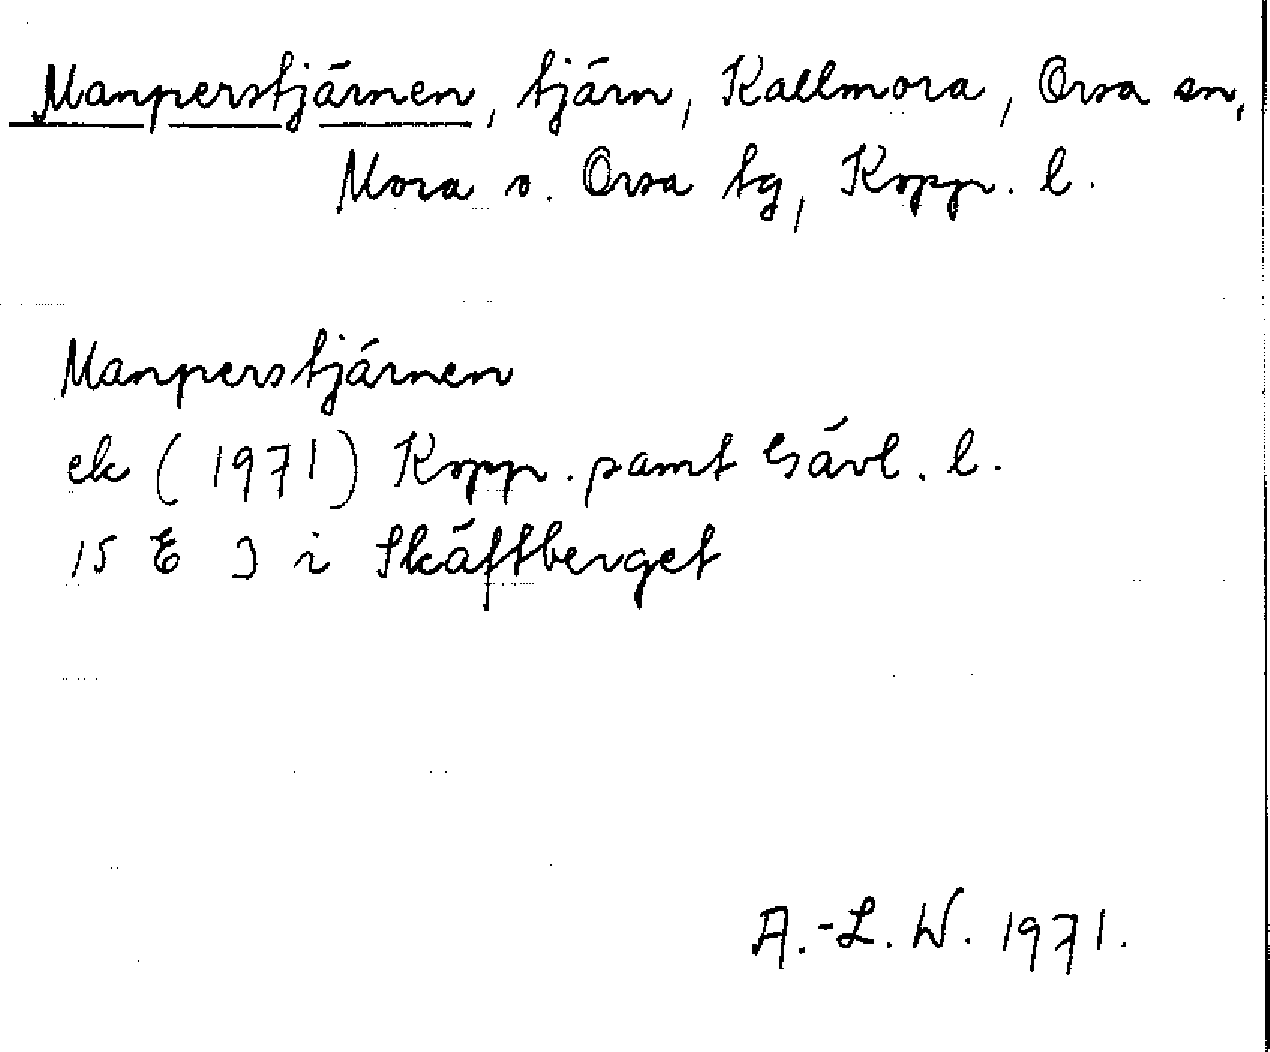 Manperstjärnen, tjärn, Kallmora, Orsa sn,
Mora o. Orsa tg, Kopp. l.
Manperstjärnen
ek (1971) Kopp. samt Gävl. l.
15 E J i Skäftberget
A.-L. W. 1971.